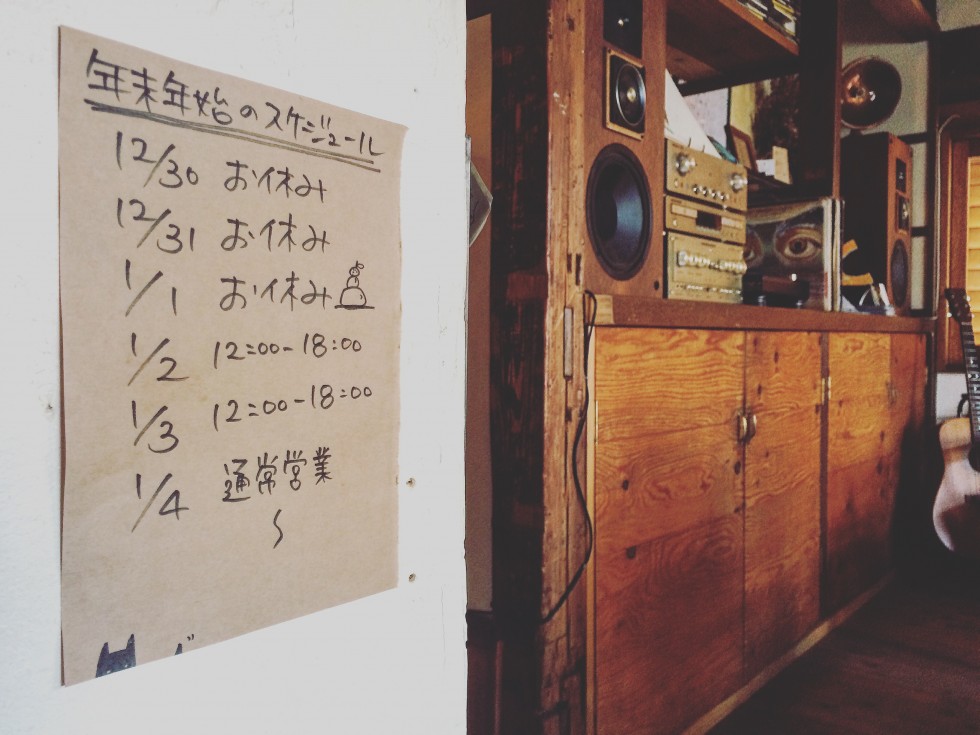 年末年始のスケジュール
12/30 お休み
12/31 お休み
1/1 お休み
1/2 12:00-18:00
1/3 12:00-18:00
1/4 通常営業
〜